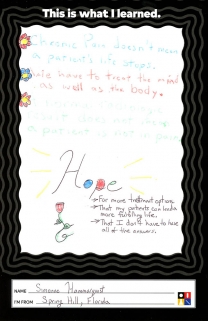 This is what I learned.
Chronic Pain doesn't mean
a patient's life stops.
We have to treat the mind
as well as the body.
a patient is not a
Hope
→ For more treatment options.
→ That my patients can lead a
more fulfilling life.
→ That I don't have to have
all of the answers.
NAME
I'M FROM Spring Hill, Florida